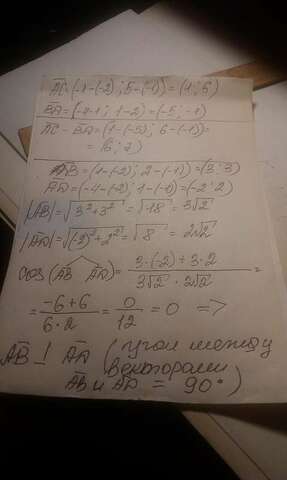 AC = (-1-(-2); 5-(-1)) = (1; 6)
BD = (-4-1; 1-2) = (-5; -1)
AC - BD = (1-(-5); 6-(-1)) =
= (6; 7)
AB = (1-(-2); 2-(-1)) = (3; 3)
AD = (-4-(-2); 1-(-1)) = (-2; 2)
|AB| = √3²+3² = √18 = 3√2
|AD| = √(-2)²+2² = √8 = 2√2
cos (AB AD) = 3·(-2)+3·2 / 3√2 · 2√2 =
= -6+6 / 6·2 = 0/12 = 0 =>
AB ⊥ AD (угол между
векторами
AB и AD = 90°)